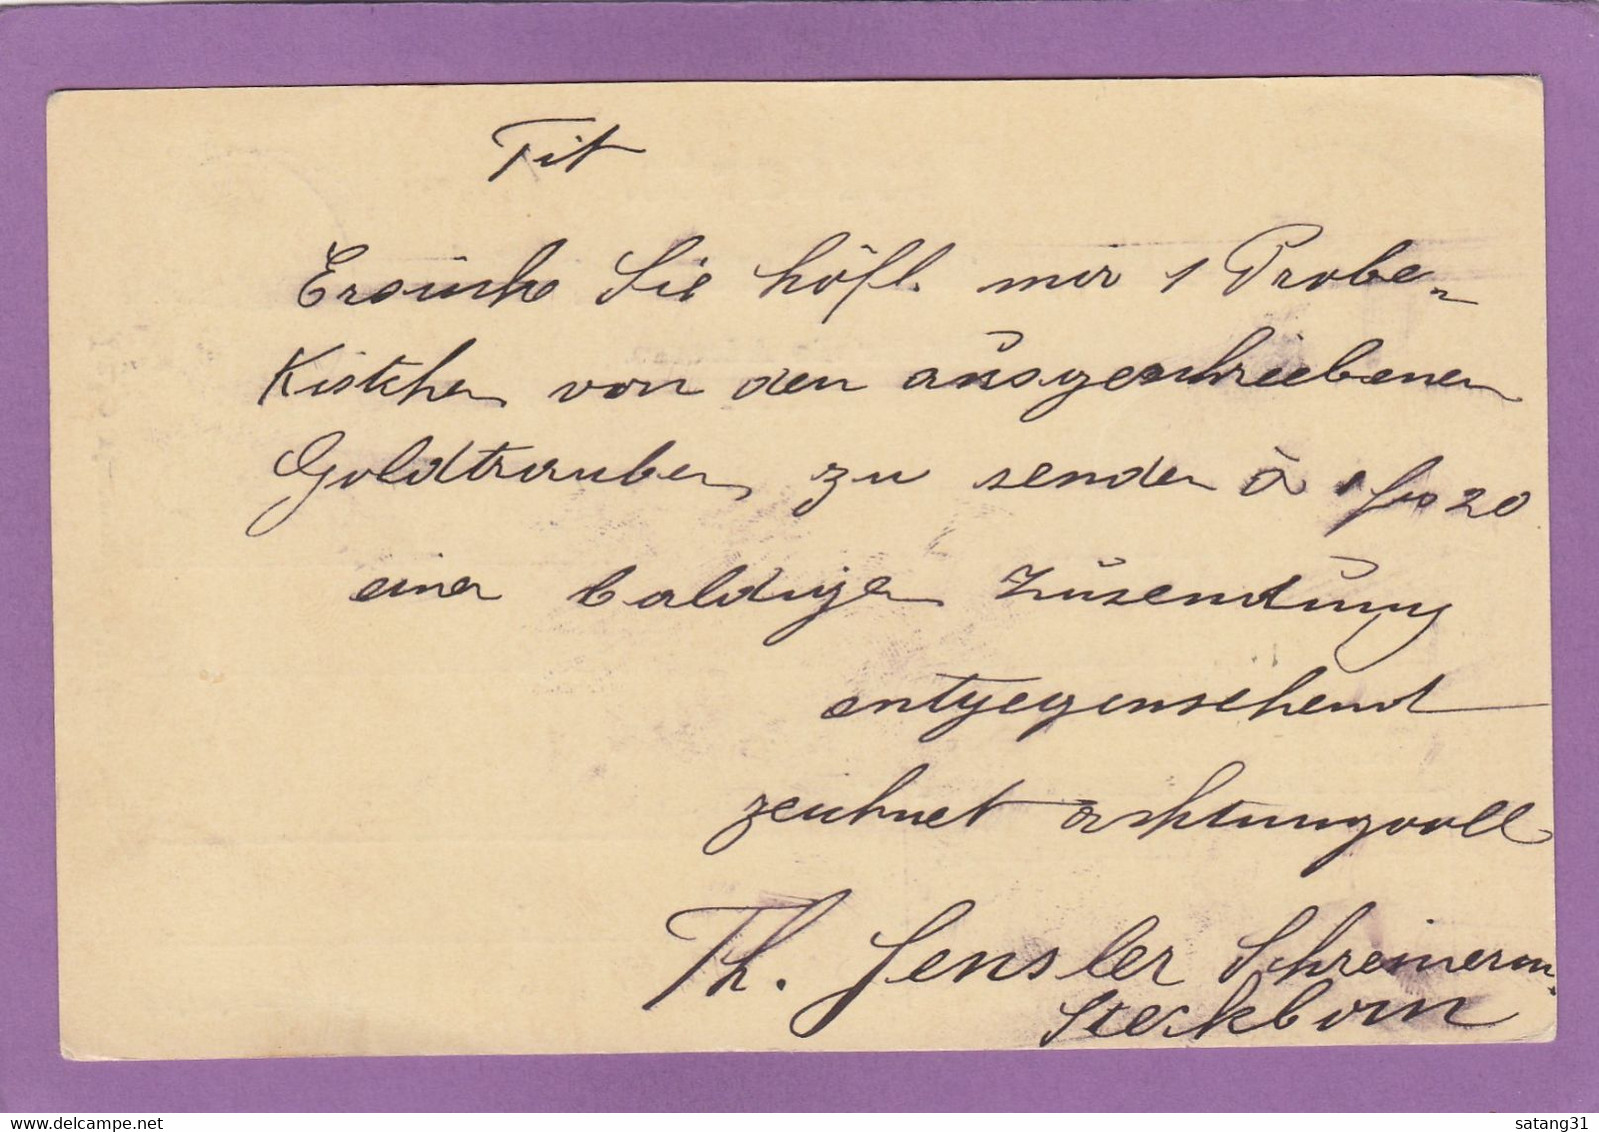 Tit
Ersuche Sie höfl. mir 1 Probe-
Kistchen von den ausgeschriebenen
Goldtrauben zu senden à 1 frs 20
einer baldigen Zusendung
entgegensehend
zeichnet achtungsvoll
Th. Gensler Schreinerm.
Steckborn
delcampe.net
satang31